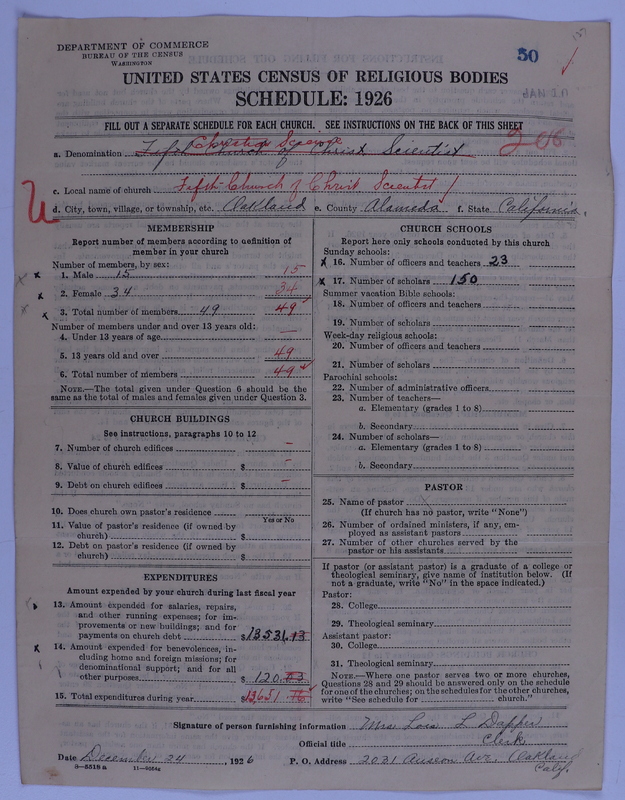 DEPARTMENT OF COMMERCE
BUREAU OF THE CENSUS
WASHINGTON
50
UNITED STATES CENSUS OF RELIGIOUS BODIES
SCHEDULE: 1926
FILL OUT A SEPARATE SCHEDULE FOR EACH CHURCH. SEE INSTRUCTIONS ON THE BACK OF THIS SHEET
206
Christian Science
a. Denomination Fifth Church of Christ Scientist
c. Local name of church Fifth Church of Christ Scientist
d. City, town, village, or township, etc. Oakland e. County Alameda f. State California
MEMBERSHIP
Report number of members according to definition of member in your church
Number of members, by sex:
1. Male 15 15
2. Female 34 34
3. Total number of members 49 49
Number of members under and over 13 years old:
4. Under 13 years of age —
5. 13 years old and over 49
6. Total number of members 49
NOTE.—The total given under Question 6 should be the same as the total of males and females given under Question 3.
CHURCH BUILDINGS
See instructions, paragraphs 10 to 12
7. Number of church edifices –
8. Value of church edifices $ –
9. Debt on church edifices $ –
10. Does church own pastor's residence
Yes or No
11. Value of pastor's residence (if owned by church) $
12. Debt on pastor's residence (if owned by church) $
EXPENDITURES
Amount expended by church during last fiscal year
13. Amount expended for salaries, repairs, and other running expenses; for improvements or new buildings; and for payments on church debt $13531.13
14. Amount expended for benevolences, including home and foreign missions; for denominational support; and for all other purposes $120.
15. Total expenditures during year $13651
CHURCH SCHOOLS
Report here only schools conducted by this church
Sunday schools:
16. Number of officers and teachers 23
17. Number of scholars 150
Summer vacation Bible schools:
18. Number of officers and teachers
19. Number of scholars
Week-day religious schools:
20. Number of officers and teachers
21. Number of scholars
Parochial schools:
22. Number of administrative officers
23. Number of teachers—
a. Elementary (grades 1 to 8)
b. Secondary
24. Number of scholars—
a. Elementary (grades 1 to 8)
b. Secondary
PASTOR
25. Name of pastor
(If church has no pastor, write "None")
26. Number of ordained ministers, if any, employed as assistant pastors
27. Number of other churches served by the pastor or his assistants
If pastor (or assistant pastor) is a graduate of a college or theological seminary, give name of institution below. (If not a graduate, write "No" in the space indicated.)
Pastor:
28. College
29. Theological seminary
Assistant pastor:
30. College
31. Theological seminary
NOTE.—Where one pastor serves two or more churches, Questions 28 and 29 should be answered only on the schedule for one of the churches; on the schedules for the other churches, write "See schedule for church."
Signature of person furnishing information Mrs Lois L
Official title Clerk
Date December 24, 1926 P. O. Address 2031 Ave. Oakland Calif.
8—5518 a